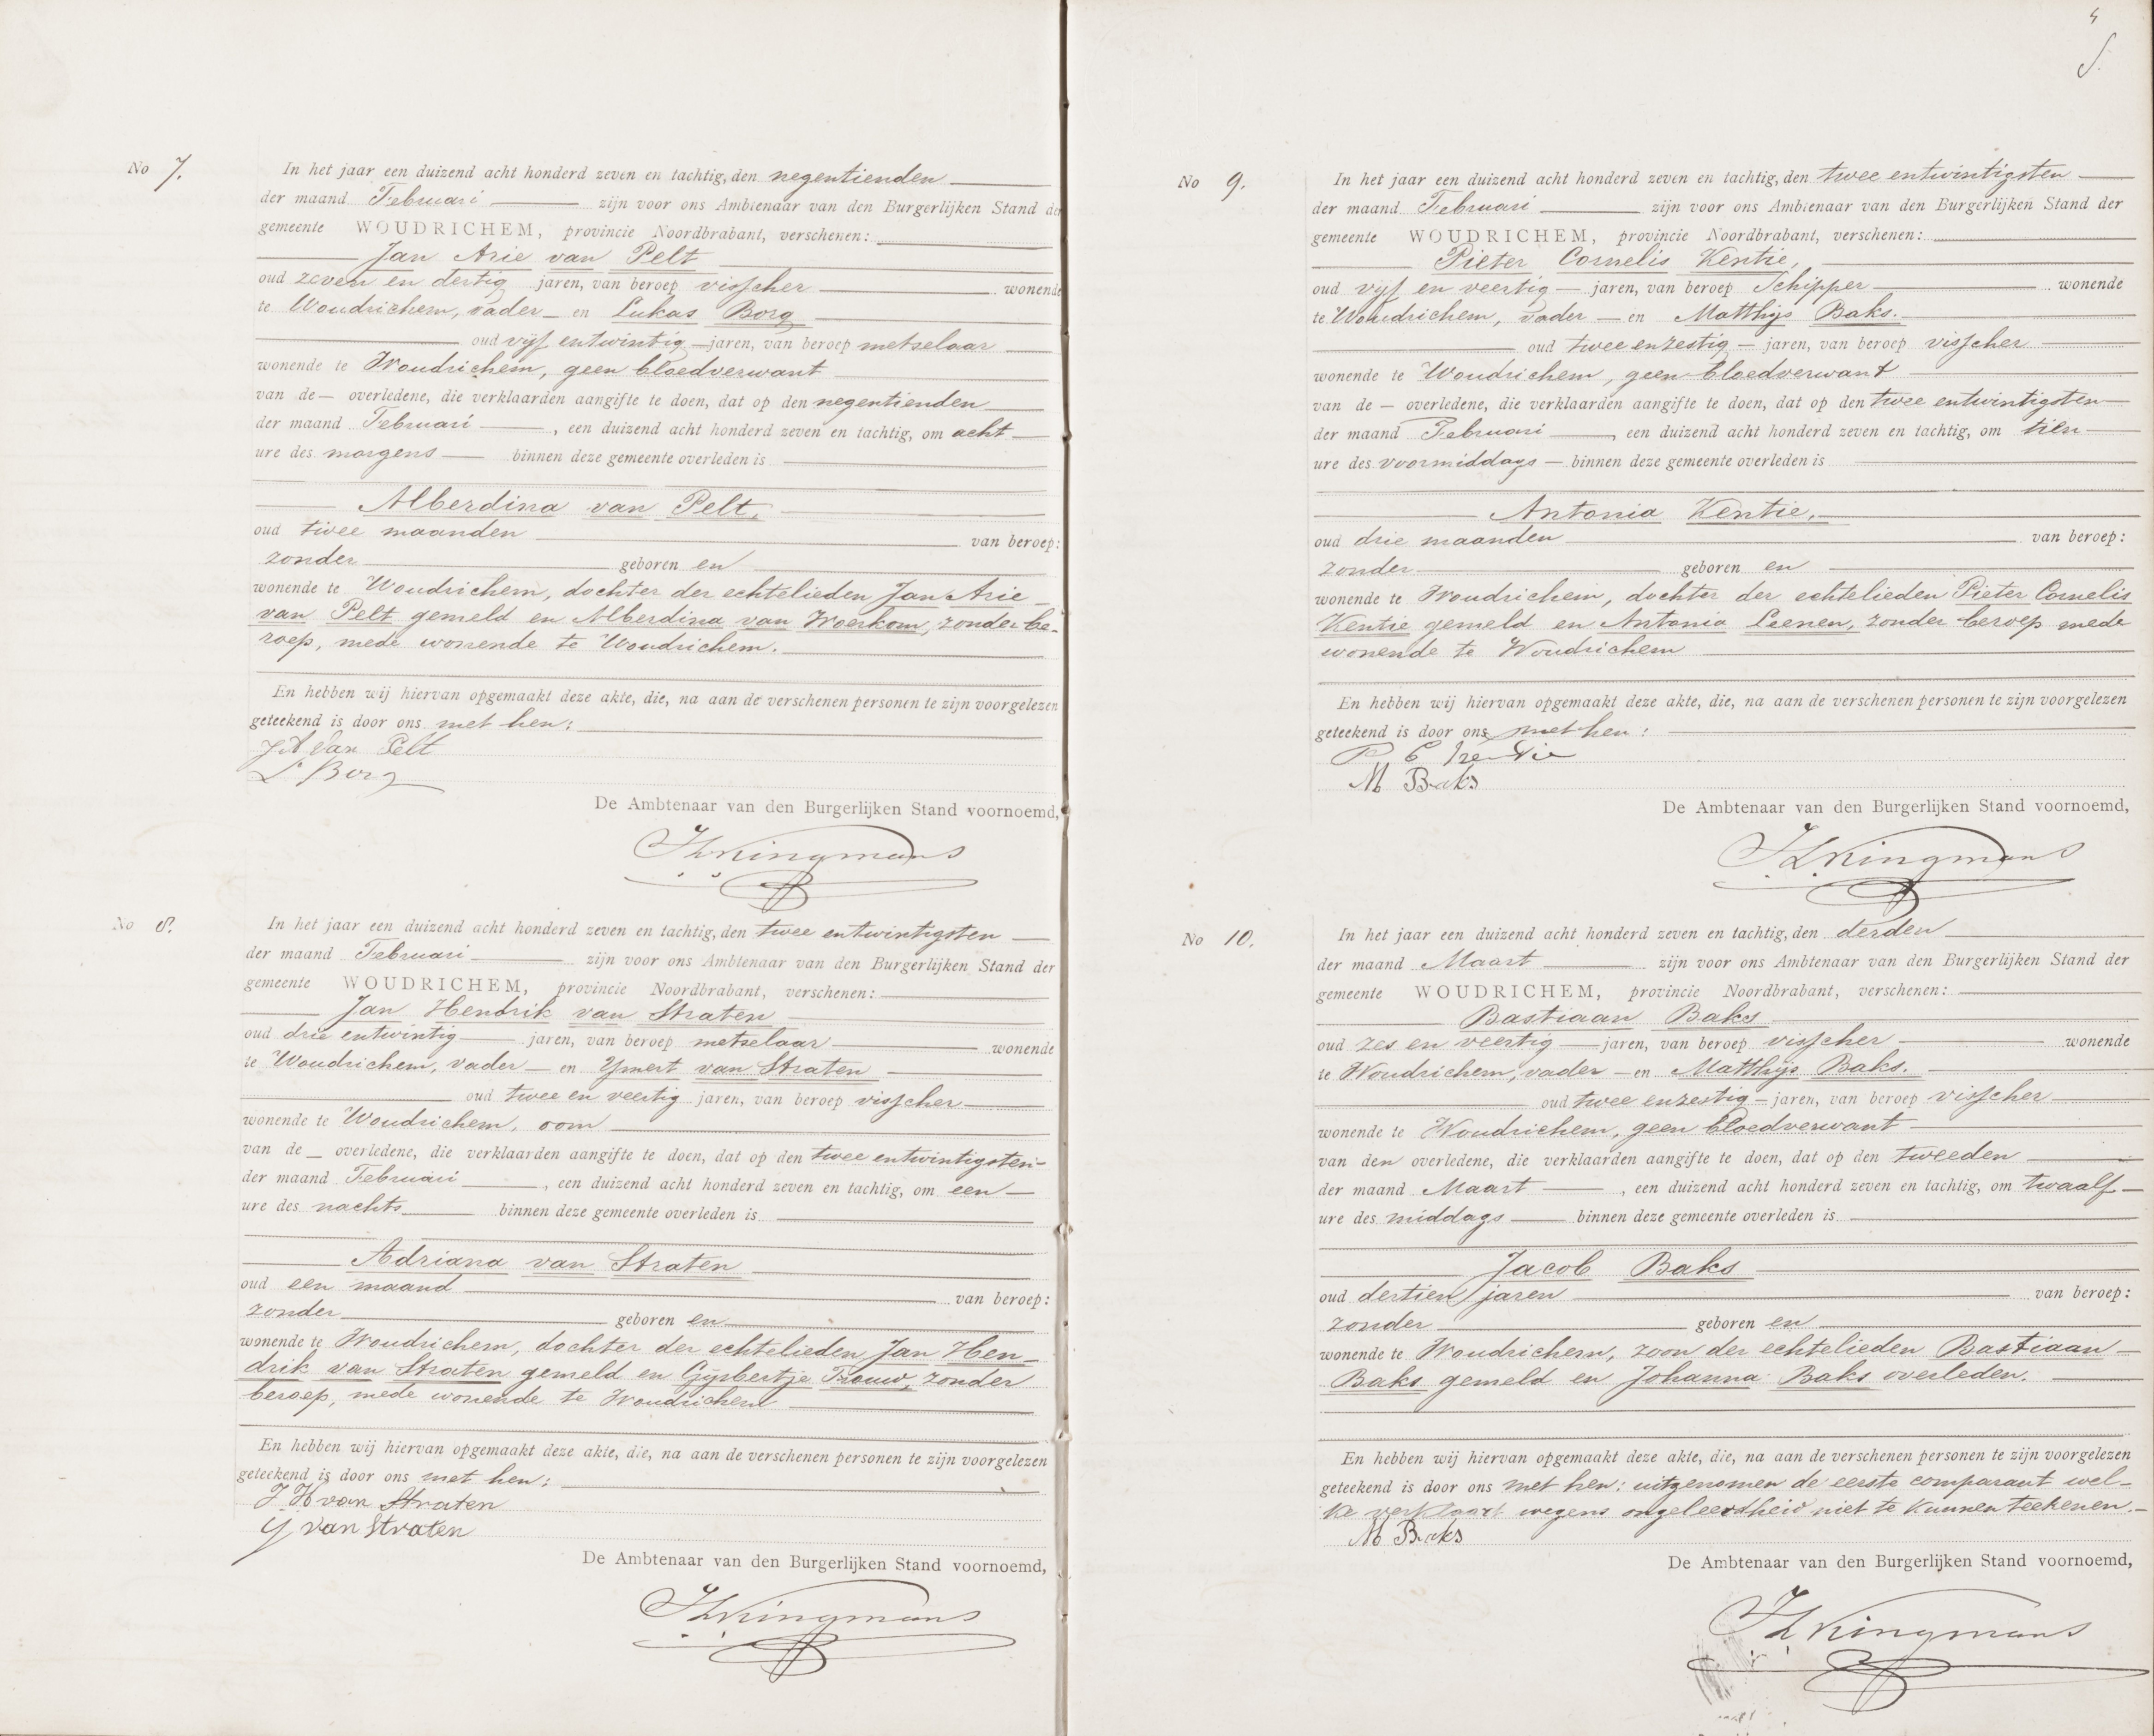 No 7.
In het jaar een duizend acht honderd zeven en tachtig, den negentienden
der maand Februari zijn voor ons Ambtenaar van den Burgerlijken Stand der
gemeente WOUDRICHEM, provincie Noordbrabant, verschenen:
Jan Arie van Pelt
oud zeven en dertig jaren, van beroep visscher wonende
te Woudrichem, vader en Lukas Borg
oud vijf entwintig jaren, van beroep metselaar
wonende te Woudrichem, geen bloedverwant
van de overledene, die verklaarden aangifte te doen, dat op den negentienden
der maand Februari, een duizend acht honderd zeven en tachtig, om acht
ure des morgens binnen deze gemeente overleden is
Alberdina van Pelt,
oud twee maanden van beroep:
zonder geboren en
wonende te Woudrichem, dochter der echtelieden Jan Arie
van Pelt gemeld en Alberdina van Woerkom, zonder be-
roep, mede wonende te Woudrichem.
En hebben wij hiervan opgemaakt deze akte, die, na aan de verschenen personen te zijn voorgelezen
geteekend is door ons met hen:
J A van Pelt
L Borg
De Ambtenaar van den Burgerlijken Stand voornoemd,
Kingmans
No 8.
In het jaar een duizend acht honderd zeven en tachtig, den twee entwintigsten
der maand Februari zijn voor ons Ambtenaar van den Burgerlijken Stand der
gemeente WOUDRICHEM, provincie Noordbrabant, verschenen:
Jan Hendrik van Straten
oud drie entwintig jaren, van beroep metselaar wonende
te Woudrichem, vader en Ymert van Straten
oud twee en veertig jaren, van beroep visscher
wonende te Woudrichem, oom
van de overledene, die verklaarden aangifte te doen, dat op den twee entwintigsten
der maand Februari, een duizend acht honderd zeven en tachtig, om een
ure des nachts binnen deze gemeente overleden is
Adriana van Straten
oud een maand van beroep:
zonder geboren en
wonende te Woudrichem, dochter der echtelieden Jan Hen-
drik van Straten gemeld en Gijsbertje Trouw, zonder
beroep, mede wonende te Woudrichem
En hebben wij hiervan opgemaakt deze akte, die, na aan de verschenen personen te zijn voorgelezen
geteekend is door ons met hen:
J H van Straten
Y van Straten
De Ambtenaar van den Burgerlijken Stand voornoemd,
Kingmans
4
No 9.
In het jaar een duizend acht honderd zeven en tachtig, den twee entwintigsten
der maand Februari zijn voor ons Ambtenaar van den Burgerlijken Stand der
gemeente WOUDRICHEM, provincie Noordbrabant, verschenen:
Pieter Cornelis Kentie,
oud vijf en veertig jaren, van beroep Schipper wonende
te Woudrichem, vader en Matthijs Baks.
oud twee enzestig jaren, van beroep visscher
wonende te Woudrichem, geen bloedverwant
van de overledene, die verklaarden aangifte te doen, dat op den twee entwintigsten
der maand Februari, een duizend acht honderd zeven en tachtig, om tien
ure des voormiddags binnen deze gemeente overleden is
Antonia Kentie,
oud drie maanden van beroep:
zonder geboren en
wonende te Woudrichem, dochter der echtelieden Pieter Cornelis
Kentie gemeld en Antonia Leenen, zonder beroep mede
wonende te Woudrichem
En hebben wij hiervan opgemaakt deze akte, die, na aan de verschenen personen te zijn voorgelezen
geteekend is door ons met hen:
P C Kentie
M Baks
De Ambtenaar van den Burgerlijken Stand voornoemd,
Kingmans
No 10.
In het jaar een duizend acht honderd zeven en tachtig, den derden
der maand Maart zijn voor ons Ambtenaar van den Burgerlijken Stand der
gemeente WOUDRICHEM, provincie Noordbrabant, verschenen:
Bastiaan Baks
oud zes en veertig jaren, van beroep visscher wonende
te Woudrichem, vader en Matthijs Baks.
oud twee enzestig jaren, van beroep visscher
wonende te Woudrichem, geen bloedverwant
van den overledene, die verklaarden aangifte te doen, dat op den tweeden
der maand Maart, een duizend acht honderd zeven en tachtig, om twaalf
ure des middags binnen deze gemeente overleden is
Jacob Baks
oud dertien jaren van beroep:
zonder geboren en
wonende te Woudrichem, zoon der echtelieden Bastiaan
Baks gemeld en Johanna Baks overleden.
En hebben wij hiervan opgemaakt deze akte, die, na aan de verschenen personen te zijn voorgelezen
geteekend is door ons met hen: uitgenomen de eerste comparant wel-
ke verklaart wegens ongeleerdheid niet te kunnen teekenen.
M Baks
De Ambtenaar van den Burgerlijken Stand voornoemd,
Kingmans